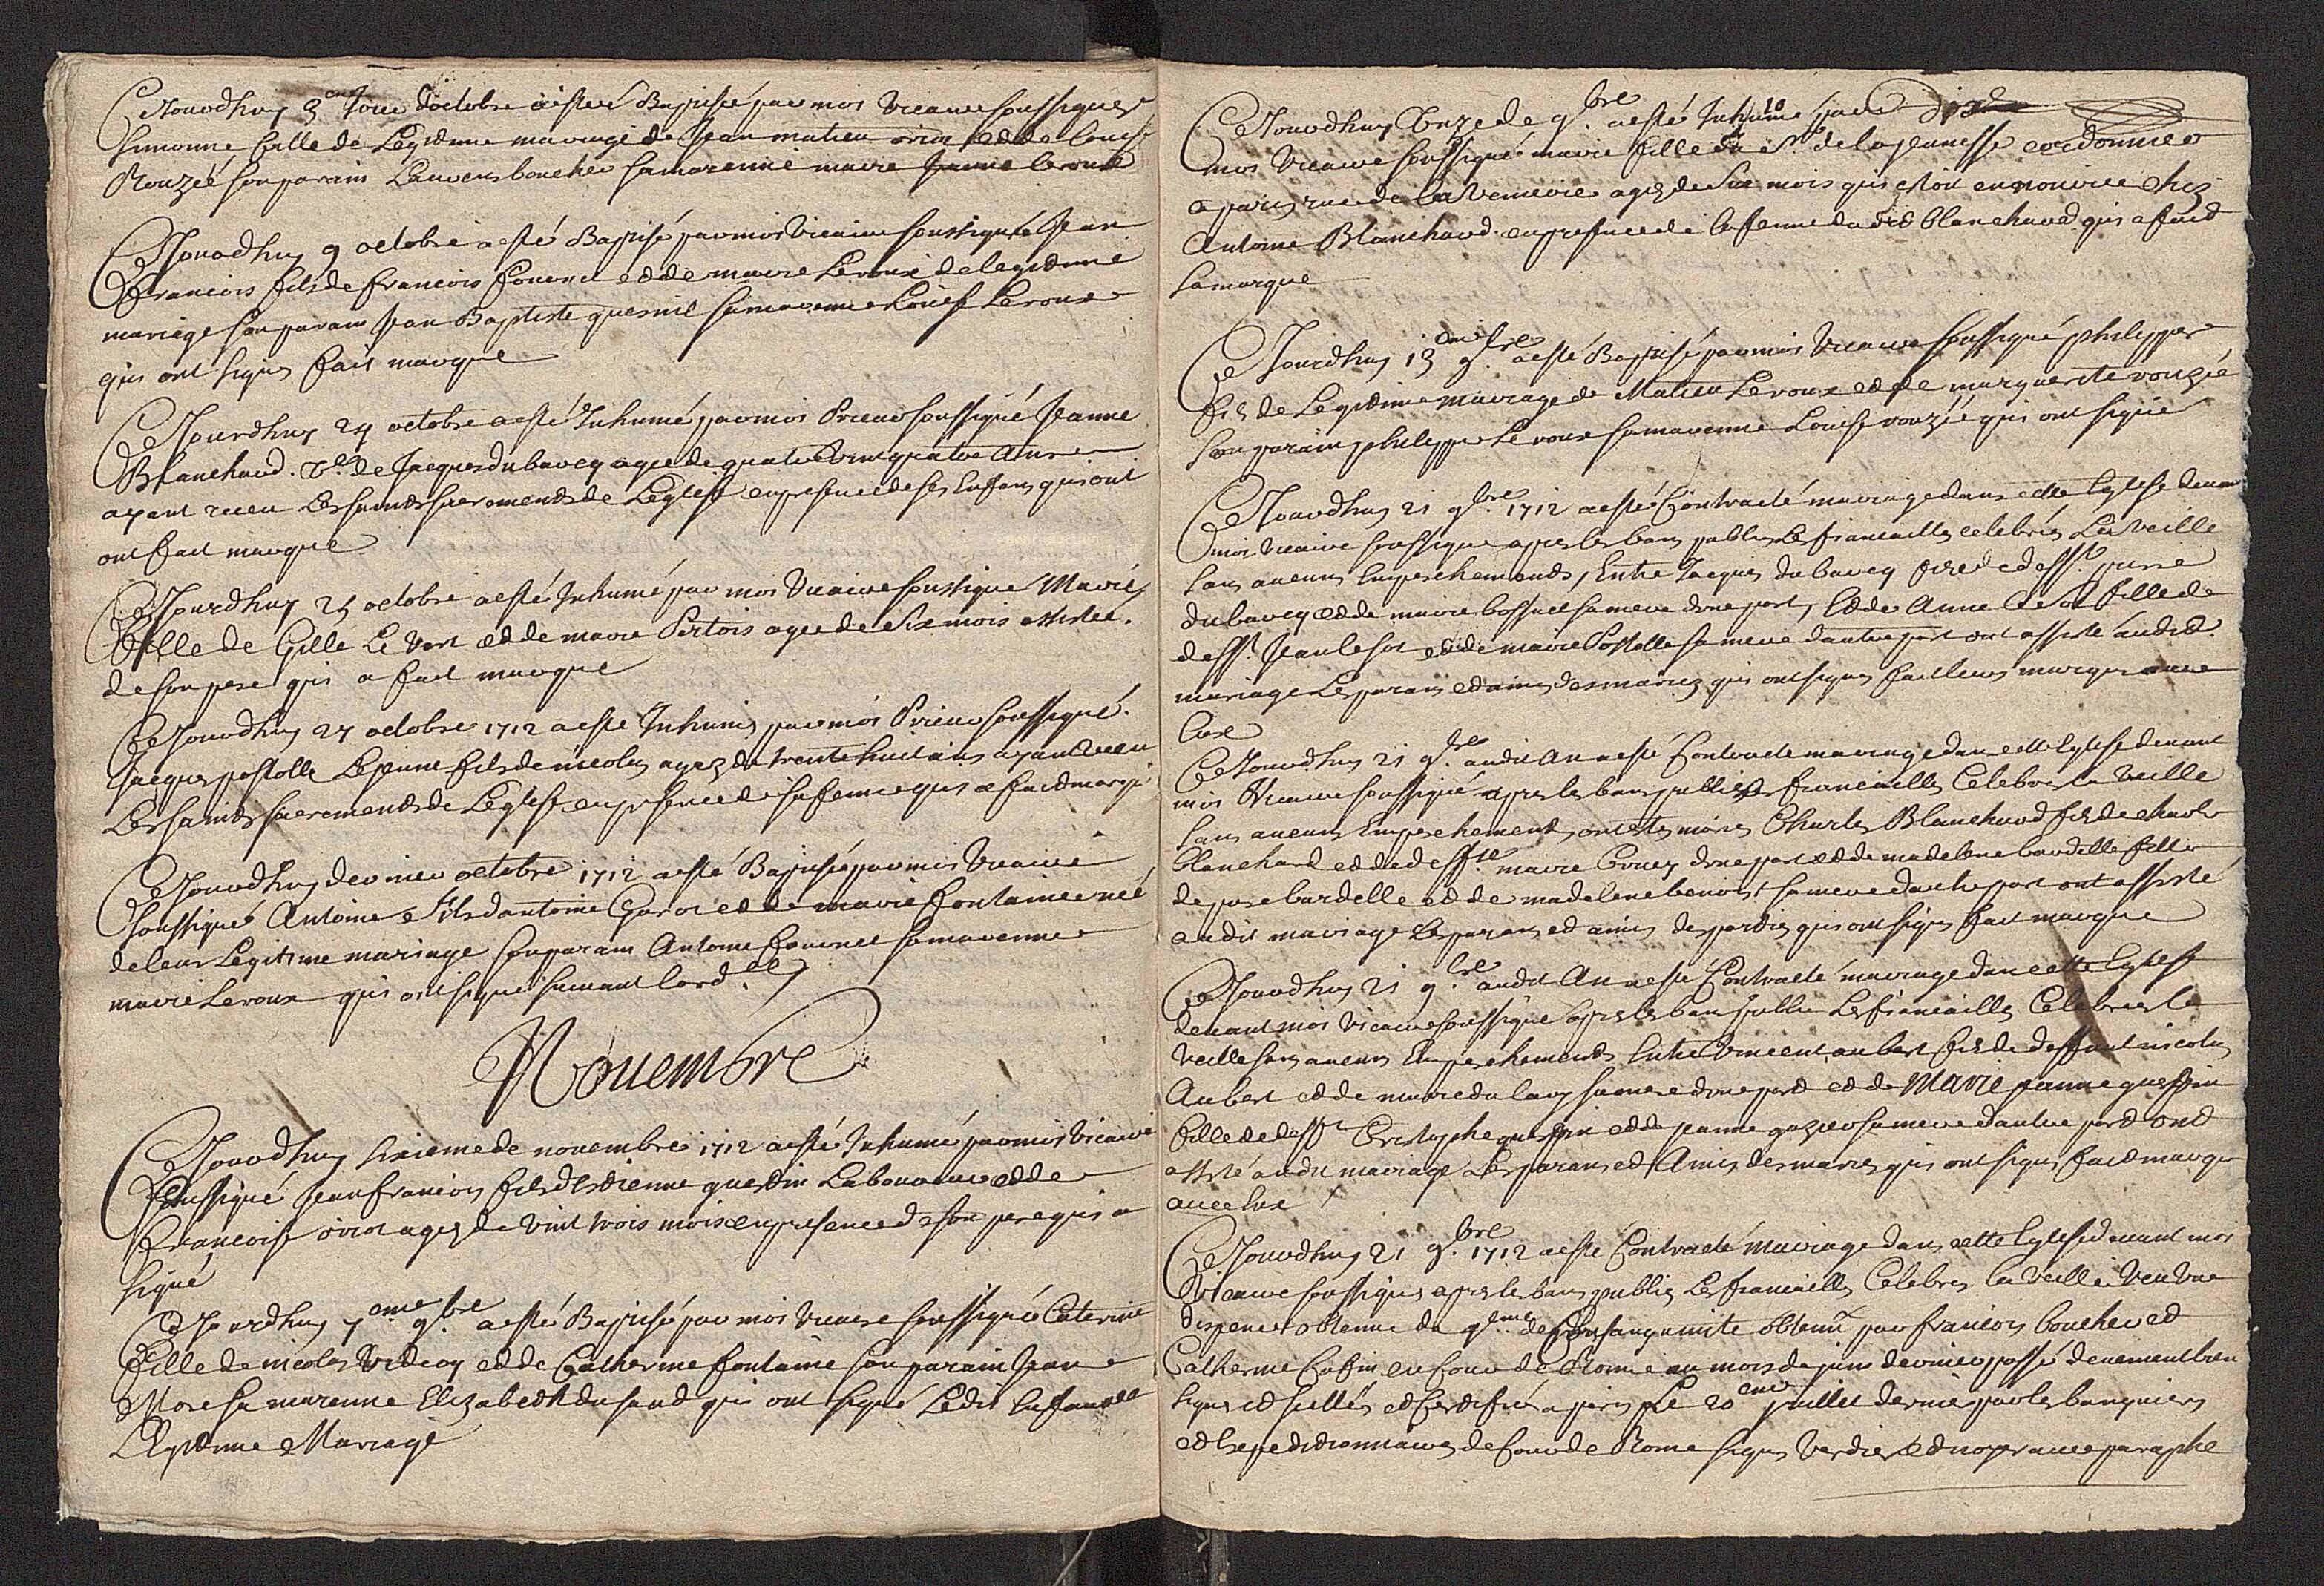 Ce Jourdhuy 3eme Jour doctobre a esté Baptisée par moi Vicaire soussigné
simonne fille de Legitime mariage de Jean matieu oviot et de louise
Rouzée son parain Laurens boucher sa marenne marie Jeanne leroux
Ce Jourdhuy 9 octobre a esté Baptisé par moi Vicaire soussigné Jean
Francois fils de francois fournet et de marie Leroux de legitime
mariage son parain Jean Baptiste quesnil sa marenne Louise Leroux
qui ont signés fait marque
Ce Jourdhuy 24 octobre a esté Inhumé par moi Prieur soussigné Jeanne
Blanchard Ve. de Jacques dubarcq agee de quatre Vint quatre Ans
ayant receu Les saints sacrements de Leglise en presence de ses Enfans qui ont
ont fait marque
Ce Jourdhuy 25 octobre a esté Inhumé par moi Vicaire soussigné Marie
fille de Gille Le Vert et de marie Pertois agee de Six mois assistee
de son pere qui a fait marque
Ce Jourdhuy 27 octobre 1712 a esté Inhumé par moi Prieur soussigné
Jacques postolle Le Jeune fils de nicolas agez de trente huit ans ayant receu
Les saints sacrements de Leglise en presence de sa femme qui a fait marque
Ce Jourdhuy dernier octobre 1712 a esté Baptisé par moi Vicaire
soussigné Antoine Fils dantoine Garot et de marie fontaine né
de leur Legitime mariage son parain Antoine fournet sa marenne
marie Leroux qui ont signé suivant lord.ce
Nouembre
Ce Jourdhuy sixieme de nouembre 1712 a esté Inhumé par moi Vicaire
soussigné Jean francois fils destienne questin Laboureur et de
francoise oviot agez de vint trois mois en presence de son pere qui a
signé
Ce Jourdhuy 7eme 9bre a esté Baptisé par moi Vicaire soussigné Caterine
fille de nicolas Vedicoy et de Catherine fontaine son parain Jean
More sa marenne Elizabeth dufand qui ont signé Ledit Enfant de
Legitime Mariage
Ce Jourdhuy Onze de 9bre a esté Inhumé par
moi Vicaire soussigné marie fille du Sr. de la Jeunesse cordonnier
a paris rue de la Vennerie agez de Six mois qui estoit en nourice chez
Antoine Blanchard en presence de la femme dudit blanchard qui a fait
sa marque
Ce Jourdhuy 13eme 9bre a esté Baptisé par moi Vicaire soussigné philippe
fils de Legitime mariage de Matieu Leroux et de marguerite rouzée
son parain philippe Le roux sa marenne Louise rouzée qui ont signé
Ce Jourdhuy 21 9bre. 1712 a esté Contracté mariage dans cette Eglise deuant
moi Vicaire soussigné apres les bans publiés Les fiancailles celebrés La veille
sans aucuns Empeschements, Entre Jacques dubarcq fils de deff.t pierre
dubarcq et de marie bossuet sa mere dune part, Et de Anne Lesot fille de
deff.t Jean lesot et de marie Postolle sa mere dautre part ont assisté audit
mariage Les parans et amis des mariez qui ont signés fait leurs marques avec
Eux
Ce Jourdhuy 21 9bre. audit An a esté Contracté mariage dans cette Eglise deuant
moi Vicaire soussigné apres les bans publiés Les fiancailles Celebrés la Veille
sans aucuns Empeschements ont étés mariés Charles Blanchard fils de charles
blanchard et de deff.te marie Crouez dune part et de madelene bardelle fille
de piere bardelle et de madelene benoist sa mere dautre part ont assisté
audit mariage Les parans et amis des parties qui ont signés fait marque
Ce Jourdhuy 21 9bre audit An a esté Contracté mariage dans cette Eglise
deuant moi Vicaire soussigné apres les bans publies Les fiancailles Celebrées la
Veille sans aucuns Empeschements Entre Vincent aubert fils de deffunt nicolas
Aubert et de marie du lary sa mere dune part et de Marie Jeanne questin
fille de deff.t Cristophe questin et de Jeanne gozier sa mere dautre part ont
assisté audit mariage Les parans et Amis des mariés qui ont signés fait marque
auec Eux
Ce Jourdhuy 21 9bre. 1712 a esté Contracté Mariage dans cette Eglise deuant moi
Vicaire soussigné apres les bans publiés Les fiancailles Celebrés la veille Veu Une
dispence obtenue du 4eme de Consanguinité obtenue par francois boucher et
Catherine Cossin en Cour de Rome au mois de juin dernier passé deuement bien
signé et scellés et certifié a paris Le 20eme juillet dernier par les banquiers
et Expeditionnaires de Cour de Rome signés Verdier et noyer auec paraphe